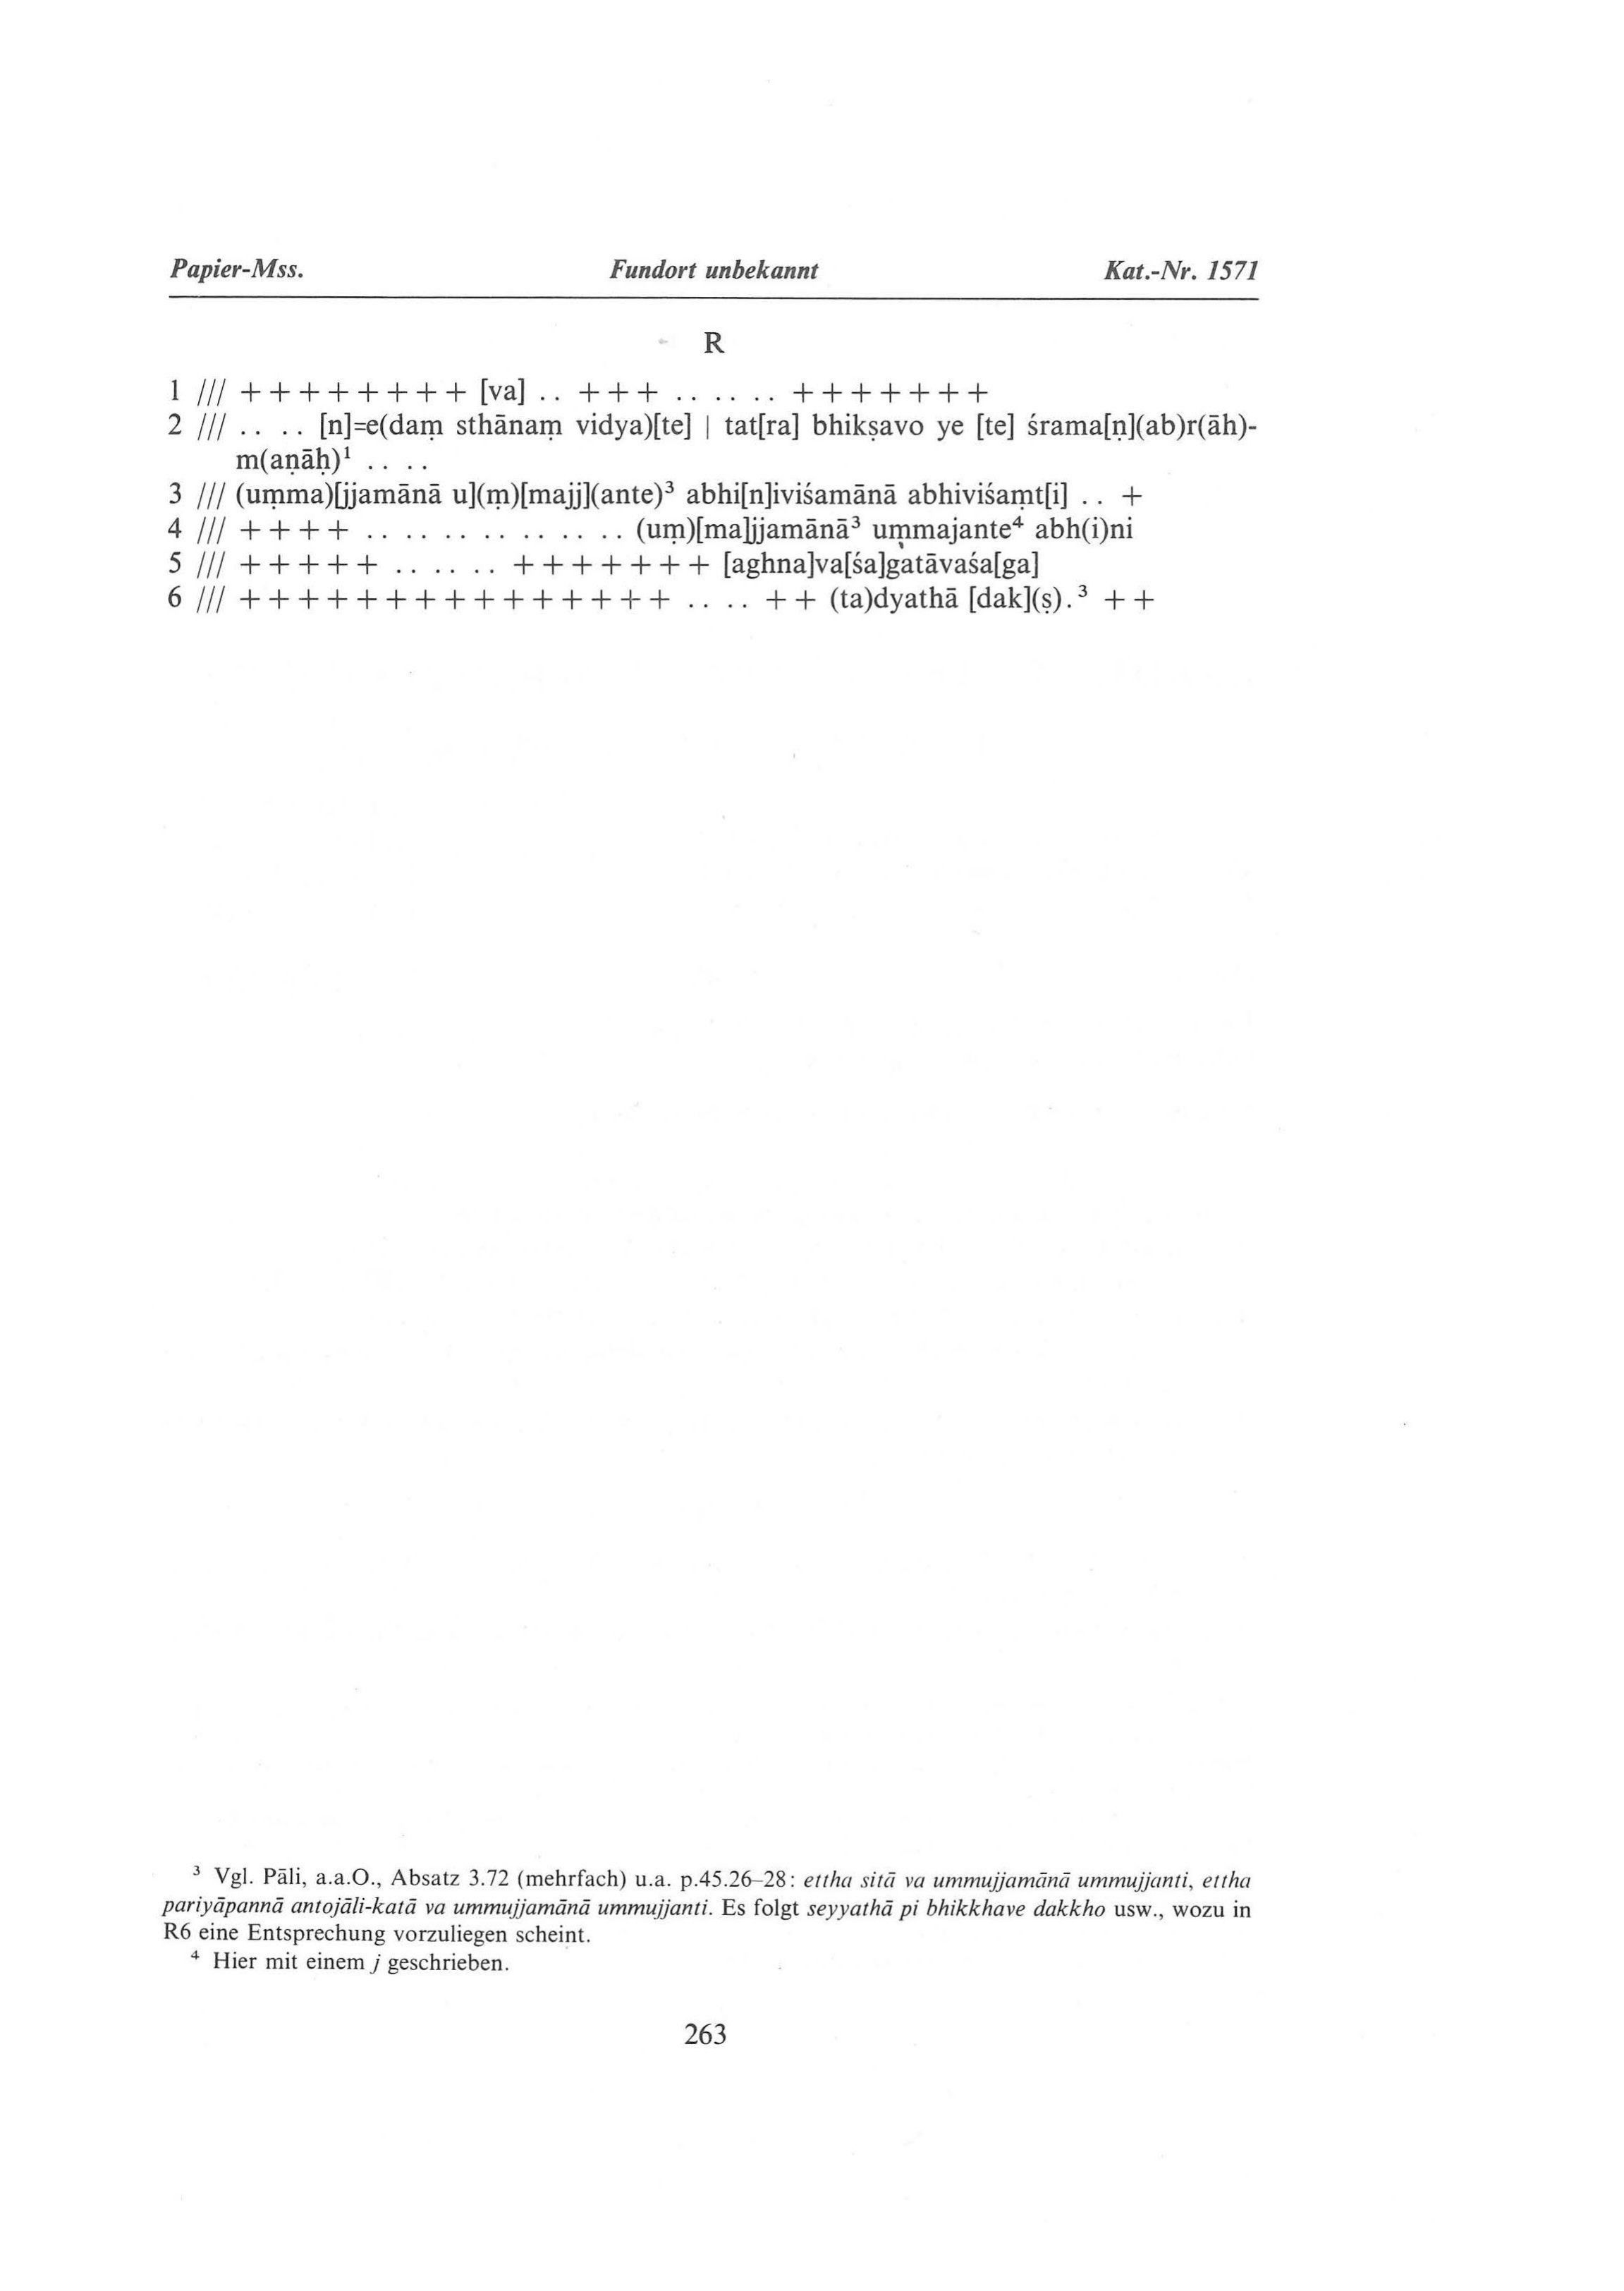 Papier-Mss. Fundort unbekannt Kat.-Nr. 1571
R
1 /// + + + + + + + + [va] .. + + + .. .. .. + + + + + + +
2 /// .. .. [n]=e(daṃ sthānaṃ vidya)[te] | tat[ra] bhikṣavo ye [te] śrama[ṇ](ab)r(āh)-
m(aṇāḥ)¹ .. ..
3 /// (uṃma)[jjamānā u](ṃ)[majj](ante)³ abhi[n]iviśamānā abhiviśaṃt[i] .. +
4 /// + + + + .. .. .. .. .. .. .. (uṃ)[ma]jjamānā³ uṃmajante⁴ abh(i)ni
5 /// + + + + + .. .. .. + + + + + + + [aghna]va[śa]gatāvaśa[ga]
6 /// + + + + + + + + + + + + + + + .. .. + + (ta)dyathā [dak](ṣ).³ + +
³ Vgl. Pāli, a.a.O., Absatz 3.72 (mehrfach) u.a. p.45.26–28: ettha sitā va ummujjamānā ummujjanti, ettha
pariyāpannā antojāli-katā va ummujjamānā ummujjanti. Es folgt seyyathā pi bhikkhave dakkho usw., wozu in
R6 eine Entsprechung vorzuliegen scheint.
⁴ Hier mit einem j geschrieben.
263